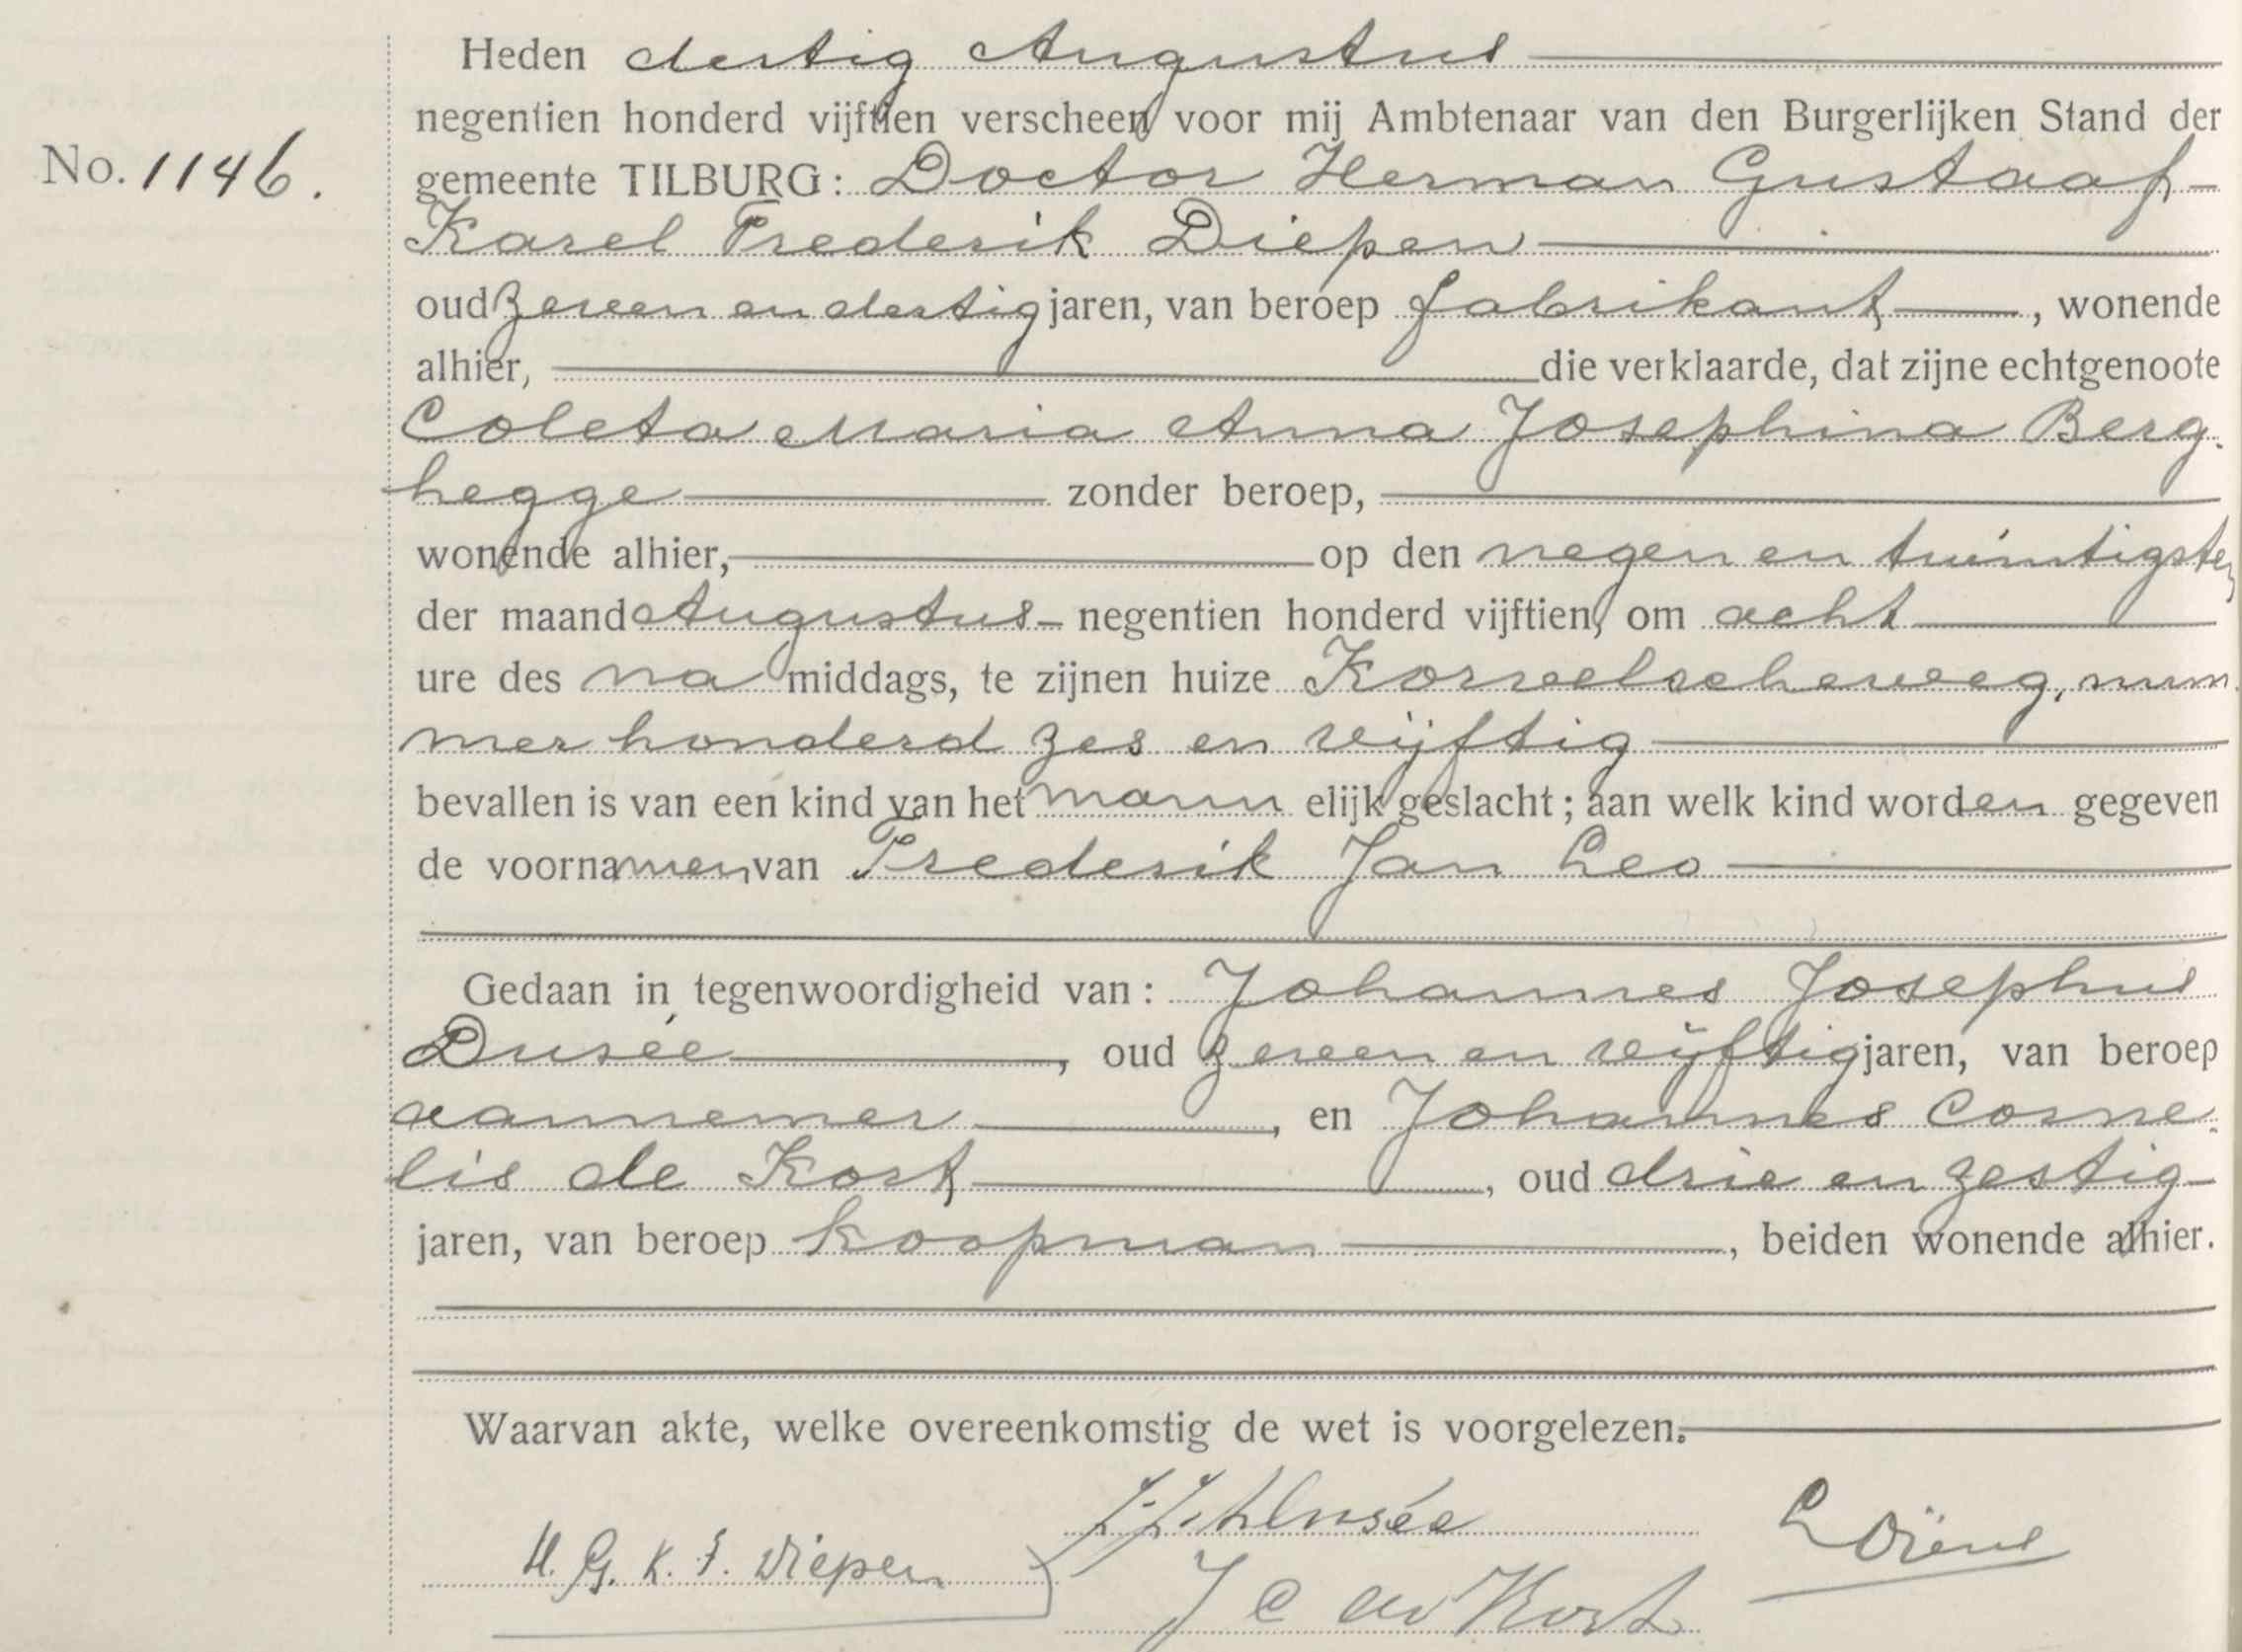 Heden dertig Augustus
negentien honderd vijftien verscheen voor mij Ambtenaar van den Burgerlijken Stand der
No. 1146.
gemeente TILBURG: Doctor Herman Gustaaf
Karel Frederik Diepen
oud zeven en dertig jaren, van beroep fabrikant, wonende
alhier, die verklaarde, dat zijne echtgenoote
Coleta Maria Anna Josephina Berg-
hegge zonder beroep,
wonende alhier, op den negen en twintigsten
der maand Augustus negentien honderd vijftien, om acht
ure des na middags, te zijnen huize Korvelscheweg, num-
mer honderd zes en vijftig
bevallen is van een kind van het mann elijk geslacht; aan welk kind worden gegeven
de voornamen van Frederik Jan Leo
Gedaan in tegenwoordigheid van: Johannes Josephus
Dusée, oud zeven en vijftig jaren, van beroep
aannemer, en Johannes Corne-
lis de Kort, oud drie en zestig
jaren, van beroep koopman, beiden wonende alhier.
Waarvan akte, welke overeenkomstig de wet is voorgelezen.
H. G. K. F. Diepen
J. J. Dusée
J C de Kort